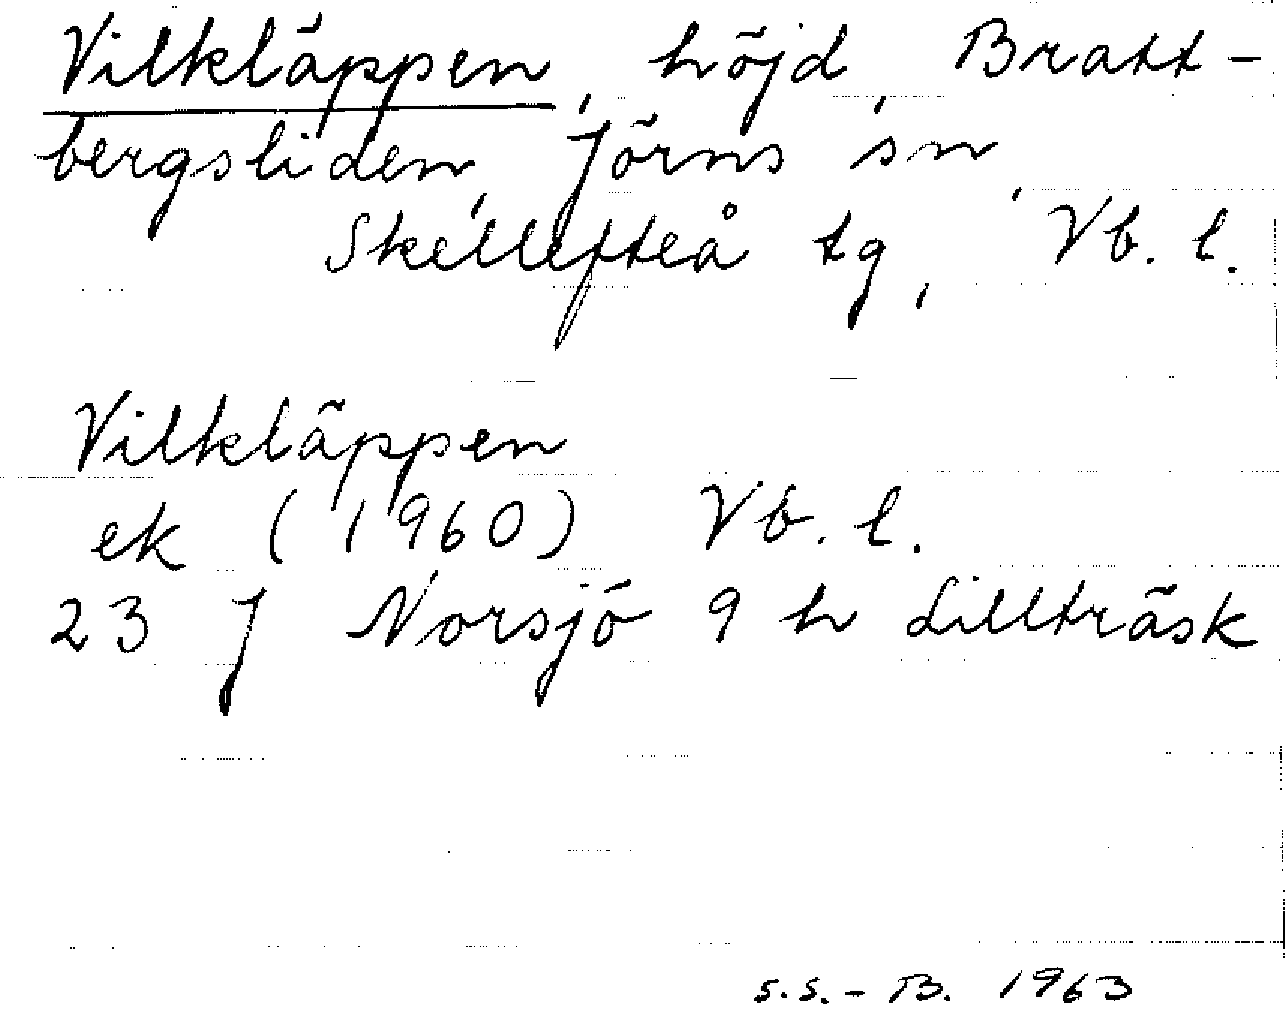 Vilkläppen, höjd, Bratt-
bergsliden, Jörns sn,
Skellefteå tg, Vb. l.
Vilkläppen
ek (1960) Vb. l.
23 J Norsjö 9 h Lillträsk
S.S.-B. 1963